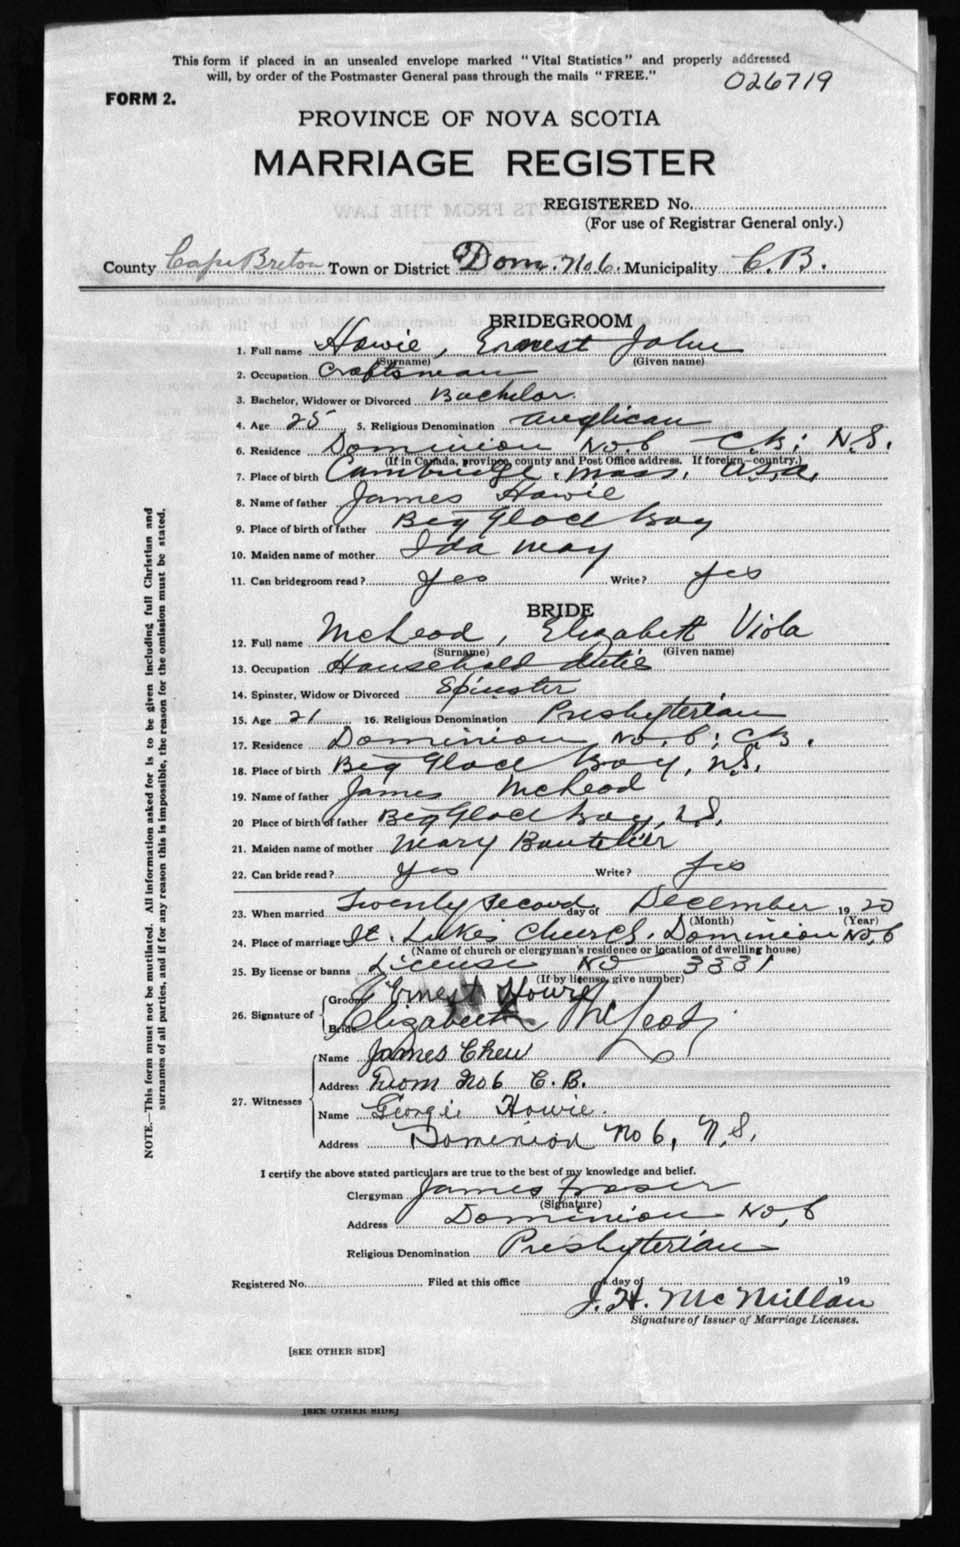 This form if placed in an unsealed envelope marked "Vital Statistics" and properly addressed
will, by order of the Postmaster General pass through the mails "FREE."
026719
FORM 2.
PROVINCE OF NOVA SCOTIA
MARRIAGE REGISTER
REGISTERED No.
(For use of Registrar General only.)
County Cape Breton Town or District Dom. No 6. Municipality C.B.
BRIDEGROOM
1. Full name Howie, Ernest John
(Surname) (Given name)
2. Occupation Craftsman
3. Bachelor, Widower or Divorced Bachelor
4. Age 25 5. Religious Denomination Anglican
6. Residence Dominion No. 6 C.B; N.S.
(If in Canada, province, county and Post Office address. If foreign—country.)
7. Place of birth Cambridge, Mass. U.S.A.
8. Name of father James Howie
9. Place of birth of father Big Glace Bay
10. Maiden name of mother Ida May
11. Can bridegroom read? Yes Write? Yes
BRIDE
12. Full name McLeod, Elizabeth Viola
(Surname) (Given name)
13. Occupation Household duties
14. Spinster, Widow or Divorced Spinster
15. Age 21 16. Religious Denomination Presbyterian
17. Residence Dominion No. 6; C.B.
18. Place of birth Big Glace Bay, N.S.
19. Name of father James McLeod
20 Place of birth of father Big Glace Bay, N.S.
21. Maiden name of mother Mary Boutelier
22. Can bride read? Yes Write? Yes
23. When married Twenty second day of December 1920
(Month) (Year)
24. Place of marriage St. Lukes Church. Dominion No. 6
(Name of church or clergyman's residence or location of dwelling house)
25. By license or banns License No 3331
(If by license, give number)
26. Signature of Groom Ernest Howie
Bride Elizabeth McLeod
27. Witnesses
Name James Chew
Address Dom No 6 C.B.
Name Georgie Howie.
Address Dominion No 6, N.S.
I certify the above stated particulars are true to the best of my knowledge and belief.
Clergyman James Fraser
(Signature)
Address Dominion No. 6
Religious Denomination Presbyterian
Registered No. Filed at this office day of 19
J. H. McMillan
Signature of Issuer of Marriage Licenses.
[SEE OTHER SIDE]
[SEE OTHER SIDE]
NOTE.—This form must not be mutilated. All information asked for is to be given including full Christian and
surnames of all parties, and if for any reason this is impossible, the reason for the omission must be stated.